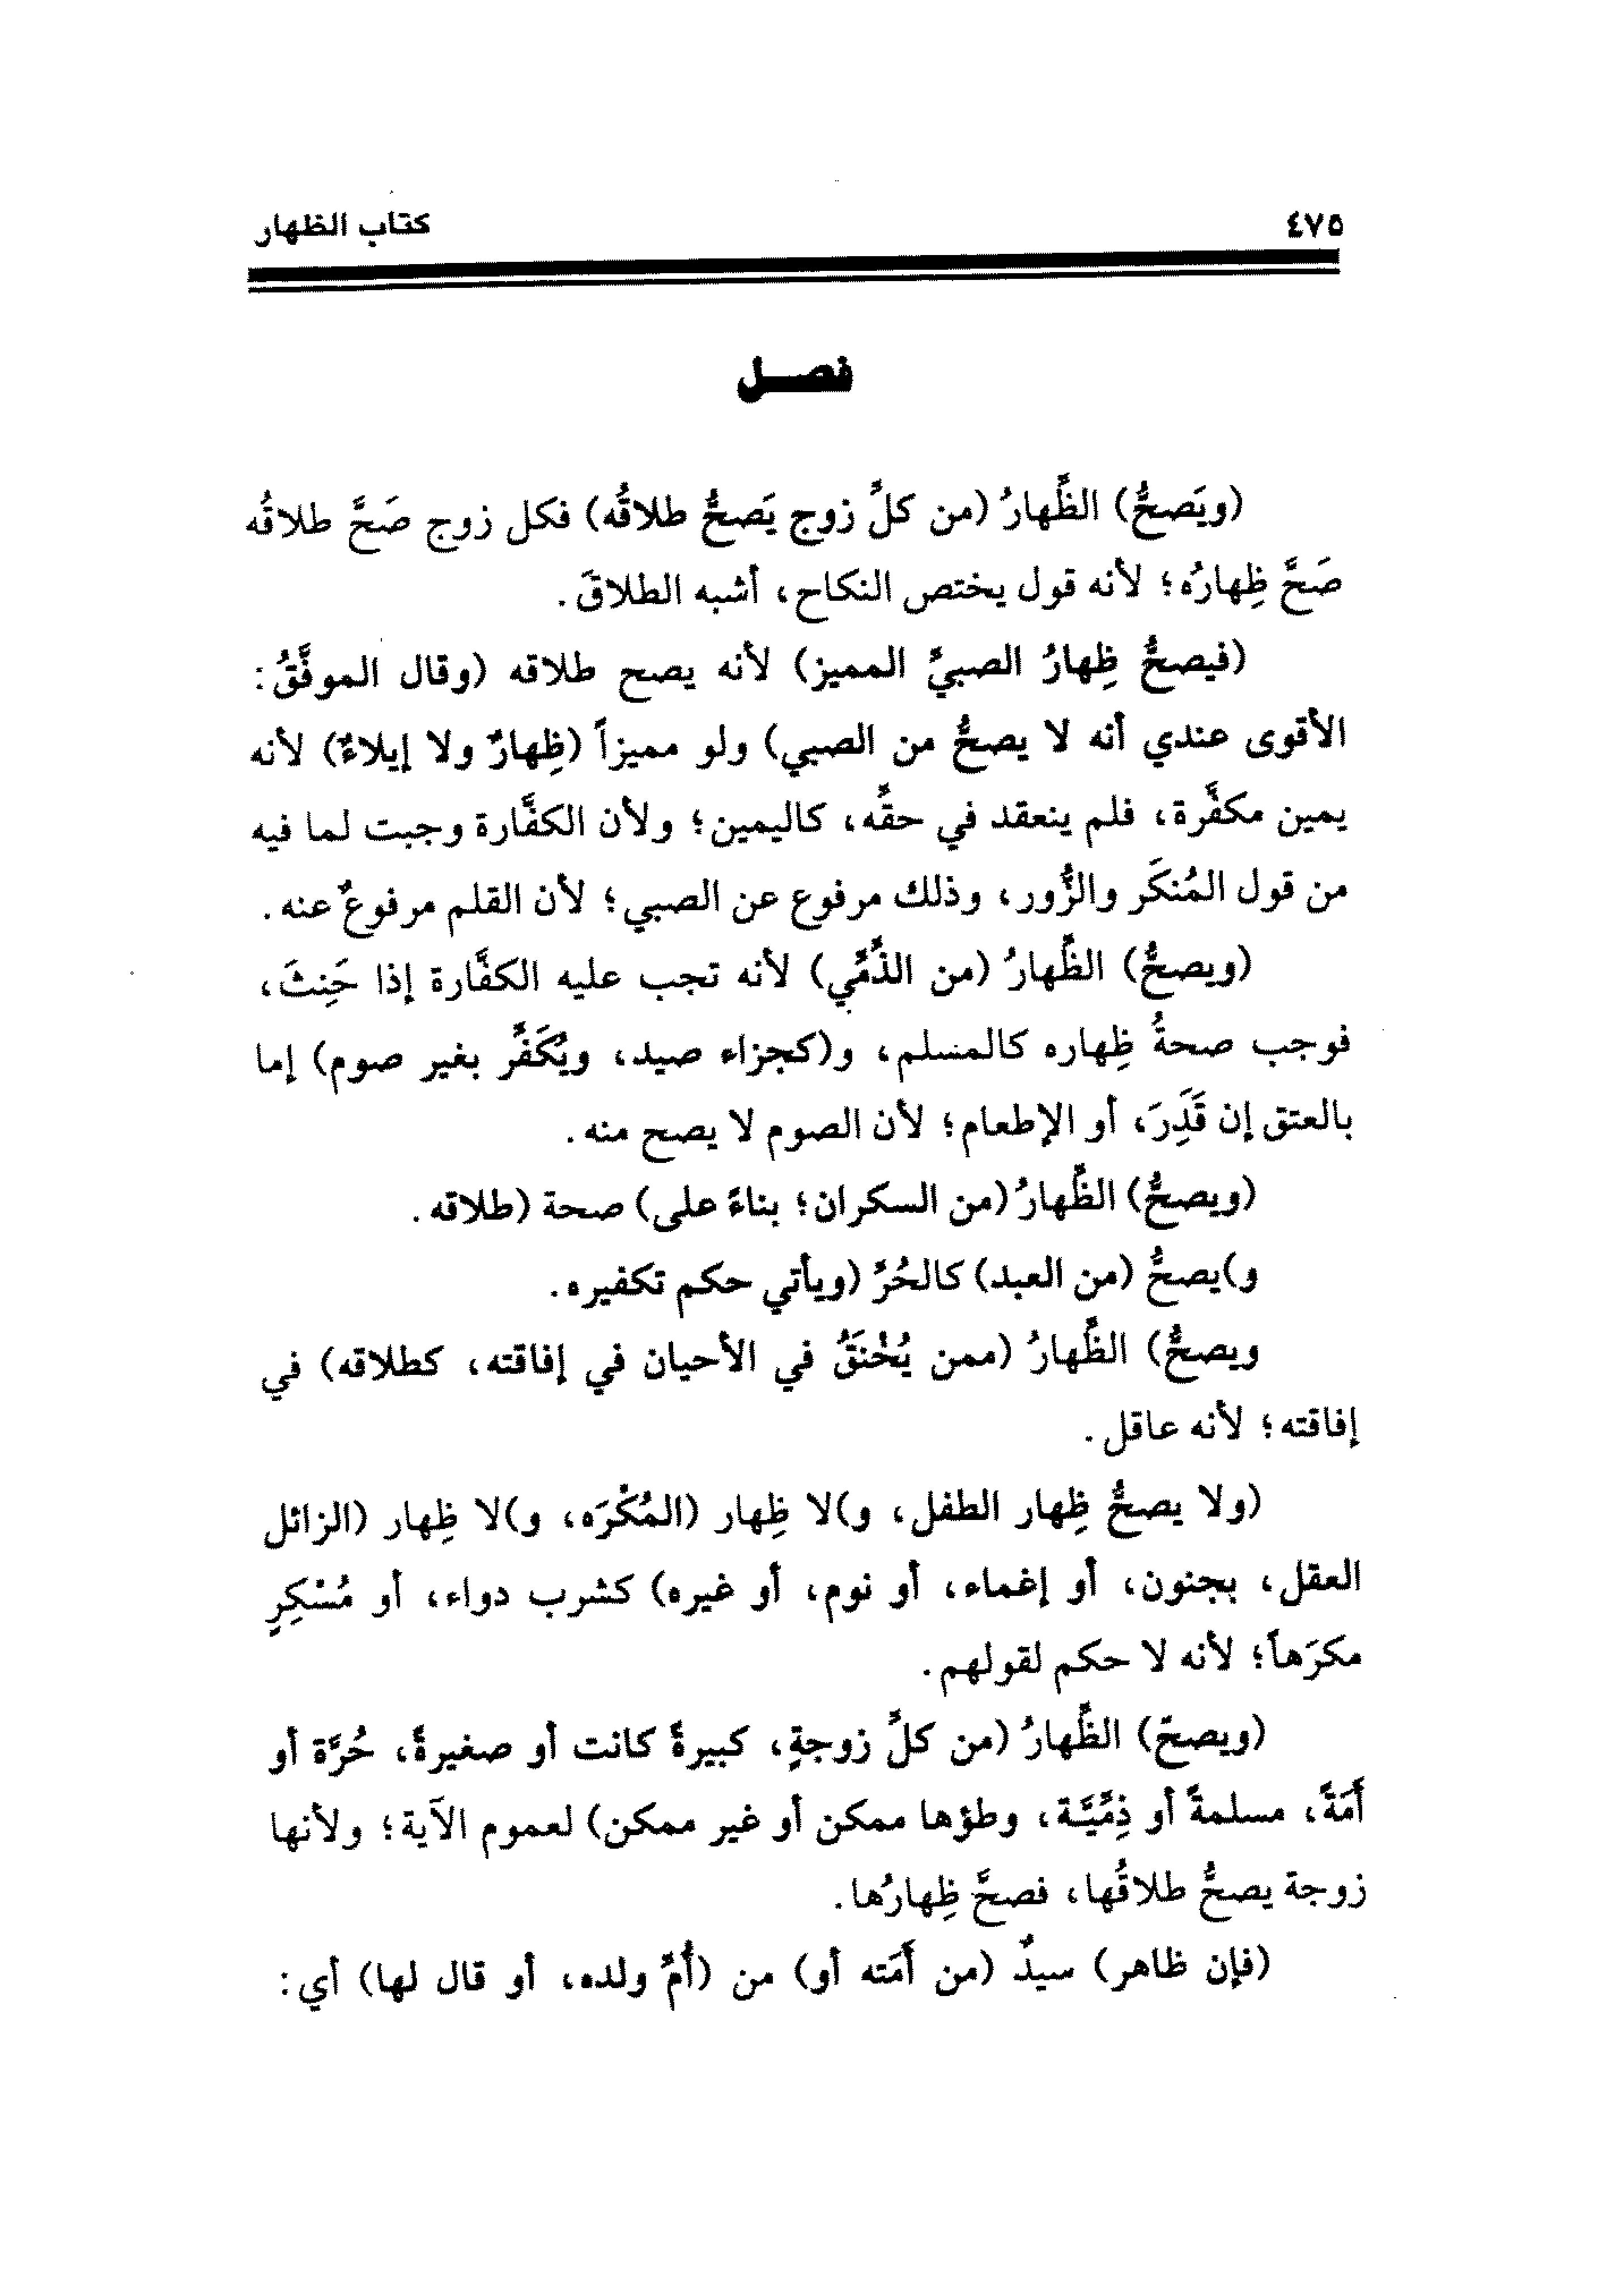 ٤٧٥
كتاب الظهار
فصل
(ويَصحُّ) الظِّهارُ (من كلِّ زوج يَصحُّ طلاقُه) فكل زوج صَحَّ طلاقُه
صَحَّ ظِهارُه؛ لأنه قول يختص النكاح، أشبه الطلاقَ.
(فيصحُّ ظِهارُ الصبيِّ المميز) لأنه يصح طلاقه (وقال الموفَّقُ:
الأقوى عندي أنه لا يصحُّ من الصبي) ولو مميزاً (ظِهارٌ ولا إيلاءٌ) لأنه
يمين مكفَّرة، فلم ينعقد في حقِّه، كاليمين؛ ولأن الكفَّارة وجبت لما فيه
من قول المُنكَر والزُّور، وذلك مرفوع عن الصبي؛ لأن القلم مرفوعٌ عنه.
(ويصحُّ) الظِّهارُ (من الذِّمِّي) لأنه تجب عليه الكفَّارة إذا حَنِثَ،
فوجب صحةُ ظِهاره كالمسلم، و(كجزاء صيد، ويُكَفِّر بغير صوم) إما
بالعتق إن قَدِرَ، أو الإطعام؛ لأن الصوم لا يصح منه.
(ويصحُّ) الظِّهارُ (من السكران؛ بناءً على) صحة (طلاقه.
و)يصحُّ (من العبد) كالحُرِّ (ويأتي حكم تكفيره.
ويصحُّ) الظِّهارُ (ممن يُخْنَقُ في الأحيان في إفاقته، كطلاقه) في
إفاقته؛ لأنه عاقل.
(ولا يصحُّ ظِهار الطفل، و)لا ظِهار (المُكْرَه، و)لا ظِهار (الزائل
العقل، بجنون، أو إغماء، أو نوم، أو غيره) كشرب دواء، أو مُسْكِرٍ
مكرَهاً؛ لأنه لا حكم لقولهم.
(ويصحّ) الظِّهارُ (من كلِّ زوجةٍ، كبيرةً كانت أو صغيرةً، حُرَّة أو
أَمَةً، مسلمةً أو ذِمِّيَّة، وطؤها ممكن أو غير ممكن) لعموم الآية؛ ولأنها
زوجة يصحُّ طلاقُها، فصحَّ ظِهارُها.
(فإن ظاهر) سيدٌ (من أَمَته أو) من (أُمِّ ولده، أو قال لها) أي: